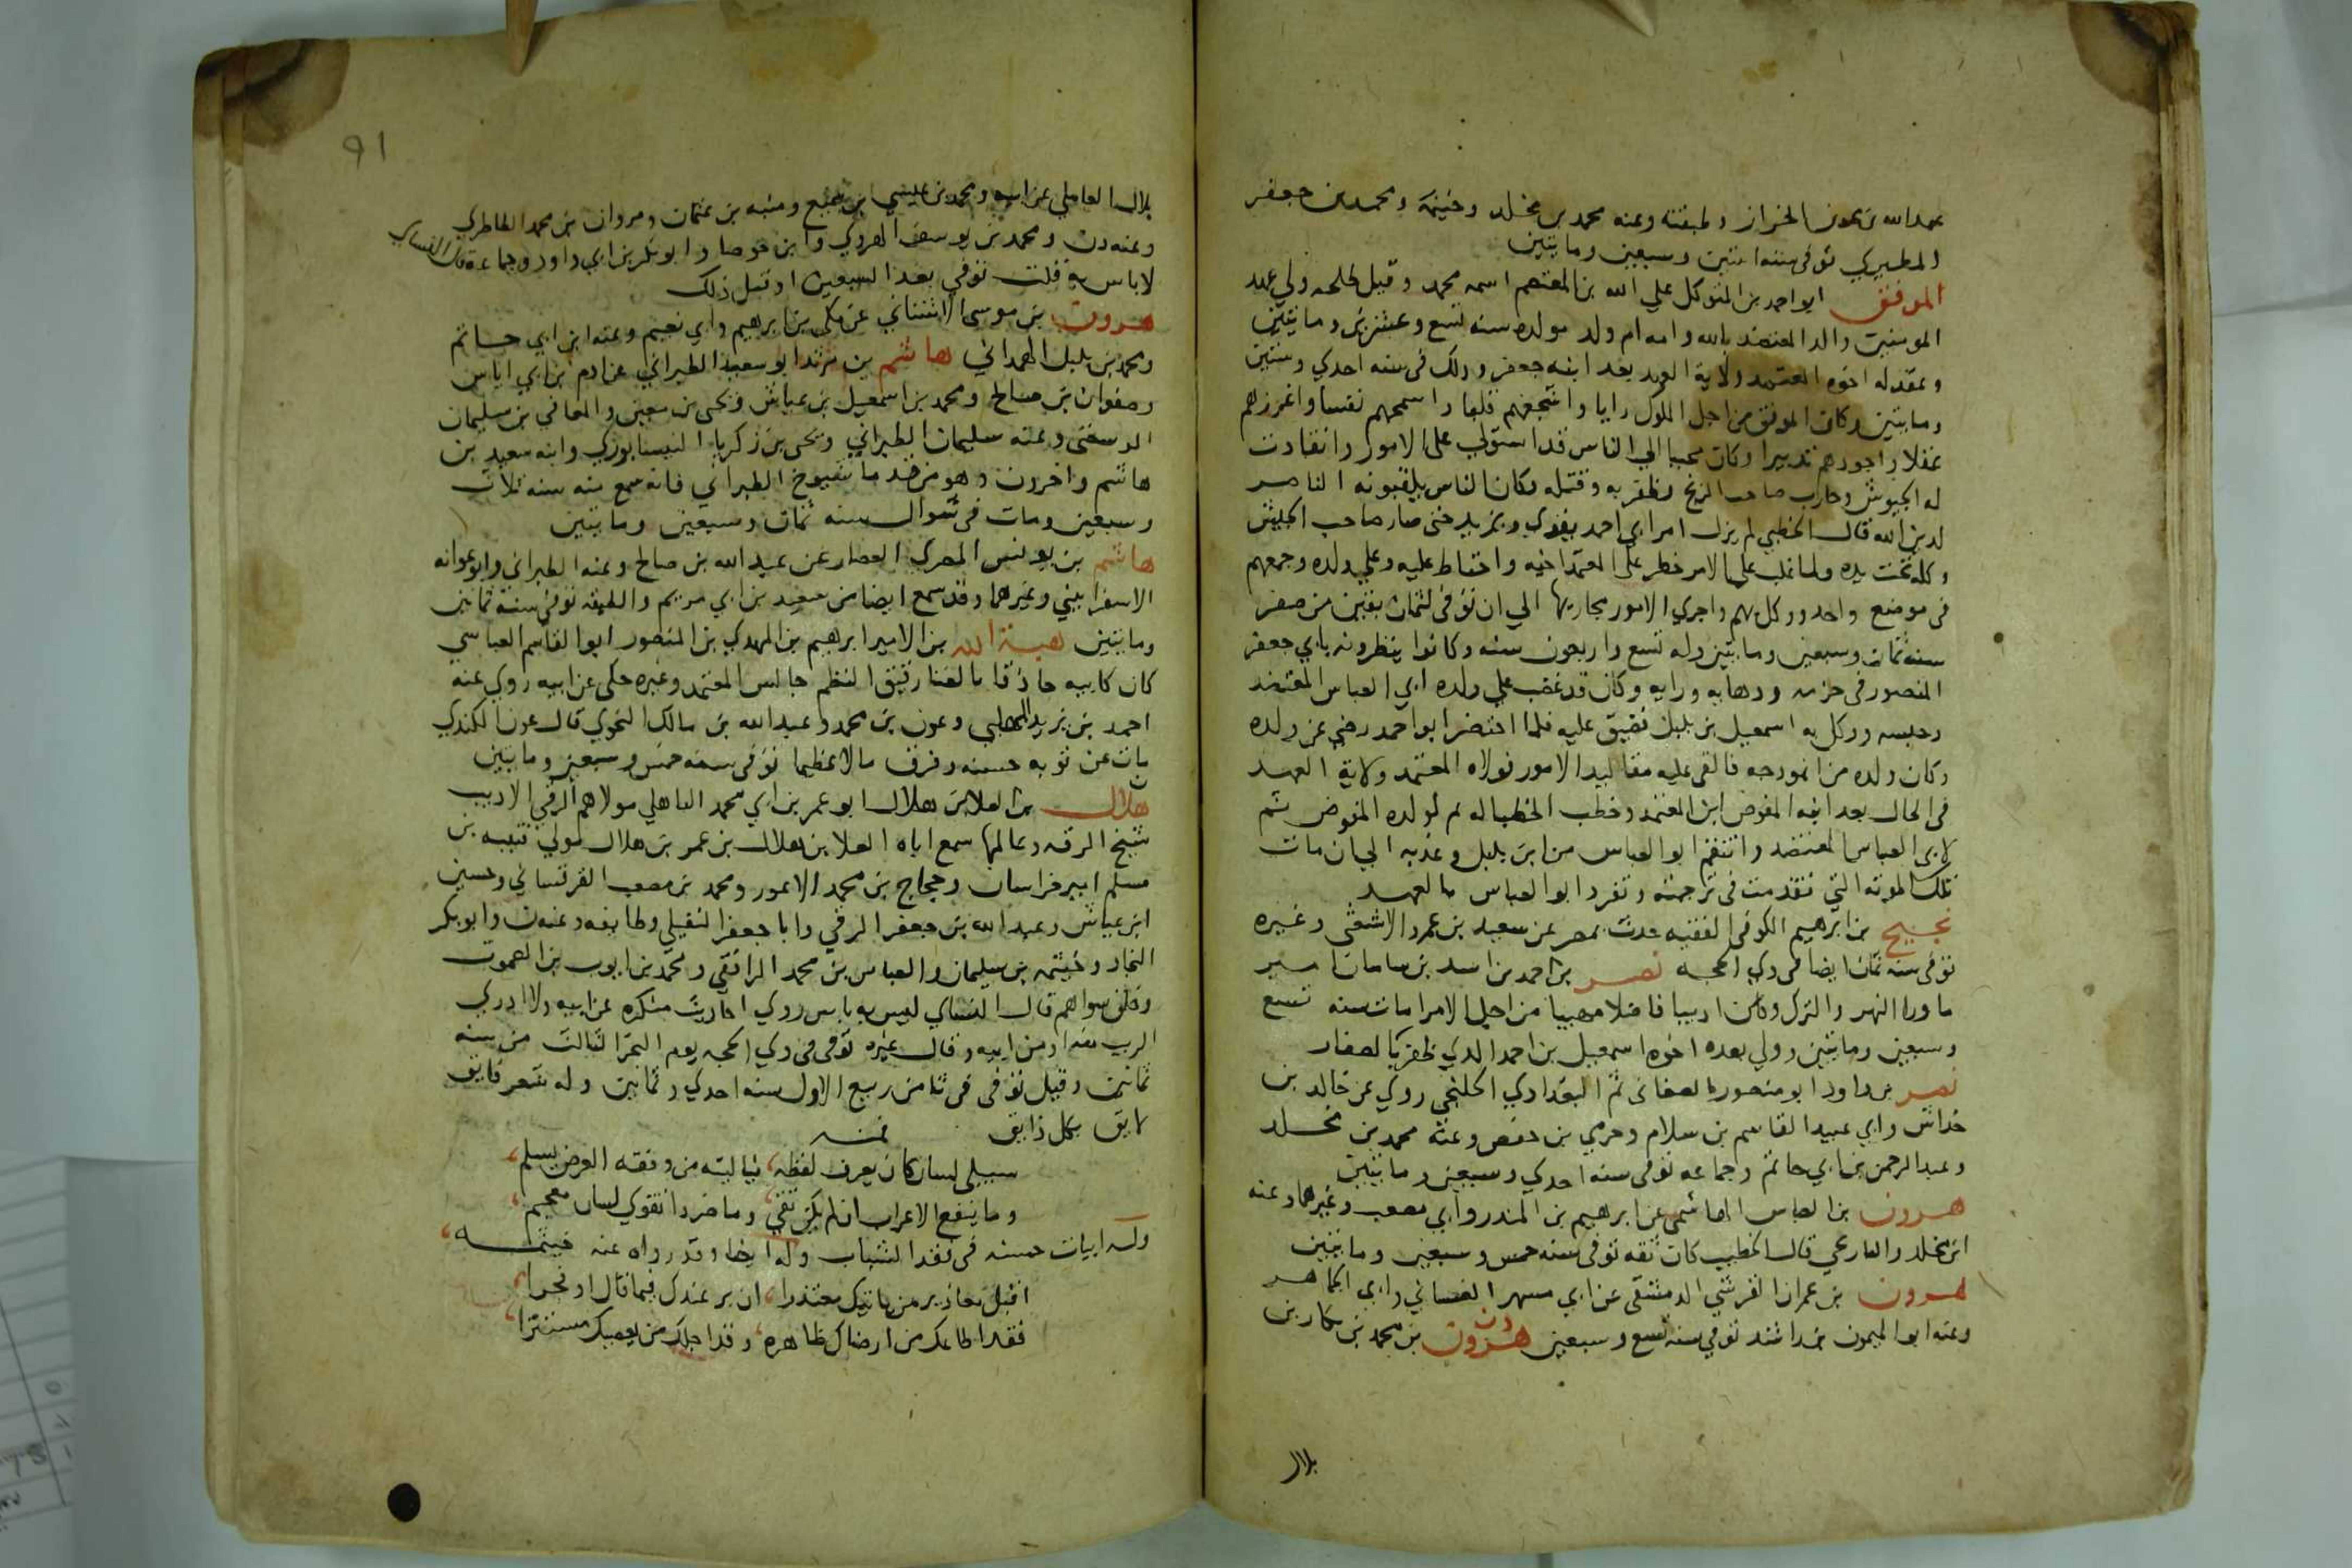 عبدالله بن عون الخراز وطبقته وعنه محمد بن مخلد وخيثمة ومحمد بن جعفر
المطيري توفى سنه اثنتين وسبعين ومايتين
الموفق ابو احمد بن المتوكل علي الله بن المعتصم اسمه محمد وقيل طلحه ولي عهد
المومنين والد المعتضد بالله وامه ام ولد مولده سنه تسع وعشرين ومايتين
وعقد له اخوه المعتمد ولاية العهد بعد ابنه جعفر وذلك فى سنه احدي وستين
ومايتين وكان الموفق من اجل الملوك رايا واشجعهم قلبا واسمحهم نفسا واغزرهم
عقلا واجودهم تدبيرا وكان محببا الي الناس قد استولي على الامور وانقادت
له الجيوش وحارب صاحب الزنج وظفر به وقتله وكان الناس يلقبونه الناصر
لدين الله قال الخطبي لم يزل امر ابي احمد يقوي ويزيد حتى صار صاحب الجيش
وكله تحت يده ولما غلب على الامر خطر على المعتمد اخيه واحتاط عليه وعلي ولده وجمعهم
فى موضع واحد ووكل بهم واجري الامور مجاريها الي ان توفى لثمان بقين من صفر
سنه ثمان وسبعين ومايتين وله تسع واربعون سنه وكانوا ينظرونه بابي جعفر
المنصور فى حزمه ودهايه ورايه وكان قد غضب علي ولده ابي العباس المعتضد
وحبسه ووكل به اسمعيل بن بلبل فضيق عليه فلما احتضر ابو احمد رضى عن ولده
وكان ولده من انموذجه فالقى عليه مقاليد الامور فولاه المعتمد ولاية العهد
فى الحال بعد ابنه المفوض ابن المعتمد وخطب الخطبا له ثم لولده المفوض ثم
لابي العباس المعتضد وانتقم ابو العباس من ابن بلبل وعذبه الي ان مات
تلك الموته التي تقدمت فى ترجمته وتفرد ابو العباس بالعهد
نجيح بن ابرهيم الكوفى الفقيه حدث بمصر عن سعيد بن عمرو الاشعثى وغيره
توفى سنه ثمان ايضا فى ذي الحجه نصر بن احمد بن اسد بن سامان امير
ماورا النهر والترك وكان اديبا فاضلا مهيبا من اجل الامرا مات سنه تسع
وسبعين ومايتين وولي بعده اخوه اسمعيل بن احمد الذي ظفر بالصفار
نصر بن داود ابو منصور الصغانى ثم البغدادي الخلنجي روي عن خالد بن
خداش وابي عبيد القاسم بن سلام وحرمي بن حفص وعنه محمد بن مخلد
وعبدالرحمن بن ابي حاتم وجماعه توفى سنه احدي وسبعين ومايتين
هرون بن العباس الهاشمى عن ابرهيم بن المنذر وابي مصعب وغيرهما وعنه
ابن مخلد والخطيب كان ثقه توفى سنه خمس وسبعين ومايتين
هرون بن عمران القرشي الدمشقى عن ابي مسهر الغسانى وابي الجماهر
وعنه ابو الميمون بن راشد توفي سنه تسع وسبعين هرون بن محمد بن بكار بن
بلال
91
بلال العاملي عن ابيه ومحمد بن عيسي بن سميع ومنبه بن عثمان ومروان بن محمد الطاطري
وعنه دن ومحمد بن يوسف الهروي وابن جوصا وابو بكر بن ابي داود وجماعة قال النساي
لا باس به قلت توفي بعد السبعين او قبل ذلك
هرون بن موسى الاشناني عن مكى بن ابرهيم وابي نعيم وعنه ابن ابي حاتم
ومحمد بن بلبل الهمداني هاشم بن مرثد ابو سعيد الطبراني عن ادم بن ابي اياس
وصفوان بن صالح ومحمد بن اسمعيل بن عياش ويحيى بن معين والمعافى بن سليمان
الرسعنى وعنه سليمان الطبراني ويحى بن زكريا النيسابوري وابنه سعيد بن
هاشم واخرون وهو من قدما شيوخ الطبراني فانه سمع منه سنه ثلاث
وسبعين ومات فى شوال سنه ثمان وسبعين ومايتين
هاشم بن يونس المصري العصار عن عبدالله بن صالح وعنه الطبراني وابو عوانه
الاسفراييني وغيرهما وقد سمع ايضا من سعيد بن ابي مريم والطبقه توفي سنة ثمانين
ومايتين هبة الله بن الامير ابرهيم بن المهدي بن المنصور ابو القاسم العباسي
كان كابيه حاذقا بالغنا رقيق النظم جالس المعتمد وغيره حكى عن ابيه روي عنه
احمد بن يزيد المهلبي وعون بن محمد وعبدالله بن مالك النحوي قال عون الكندي
مات عن توبه حسنه وفرق مالا عظيما توفى سنه خمس وسبعين ومايتين
ن هلال بن العلا بن هلال ابو عمر بن ابي محمد الباهلي مولاهم الرقي الاديب
شيخ الرقه وعالمها سمع اباه العلا بن هلال بن عمر بن هلال مولي قتيبه بن
مسلم امير خراسان وحجاج بن محمد الاعور ومحمد بن مصعب القرقساني وحسين
ابن عياش وعبد الله بن جعفر الرقي وابا جعفر النفيلي وطايفه وعنه ن وابو بكر
النجاد وخيثمه بن سليمان والعباس بن محمد الرافقى ومحمد بن ايوب بن الصموت
وخلق سواهم قال النساي ليس به باس روي احاديث منكره عن ابيه ولا ادري
الريب منه او من ابيه وقال غيره توفى فى ذي الحجه يوم النحر الثالث من سنه
ثمانين وقيل توفى فى ثامن ربيع الاول سنه احدي وثمانين وله شعر فايق
لايق بكل ذايق فمنه
سيبلى لسان كان يعرب لفظه، فياليته من وقفه العرض يسلم،
وما ينفع الاعراب ان لم يكن تقى، وما ضر ذا تقوي لسان معجم،
وله ابيات حسنه فى فقد الشباب وله ايضا وقد رواه عنه خيثمه،
اقبل معاذير من ياتيك معتذرا، ان بر عندك فيما قال او فجرا،
فقد اطاعك من ارضاك ظاهره، وقد اجلك من يعصيك مستترا،